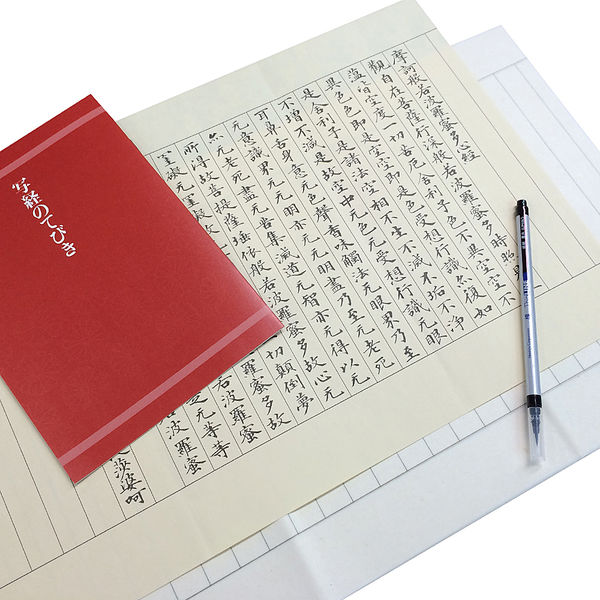 写経のてびき
摩訶般若波羅蜜多心経
觀自在菩薩行深般若波羅蜜多時照
蘊皆空度一切苦厄舎利子色不異空空不
異色色即是空空即是色受想行識亦復如
是舎利子是諸法空相不生不滅不垢不淨
不増不減是故空中无色无受想行識无眼
耳鼻舌身意无色聲香味觸法无眼界乃至
无意識界无无明亦无无明盡乃至无老死
亦无老死盡无苦集滅道无智亦无得以无
所得故菩提薩埵依般若波羅蜜多故心无
罣礙无罣礙故 切顛倒夢
羅蜜多故
若波羅蜜
无等等
若波羅蜜
婆呵